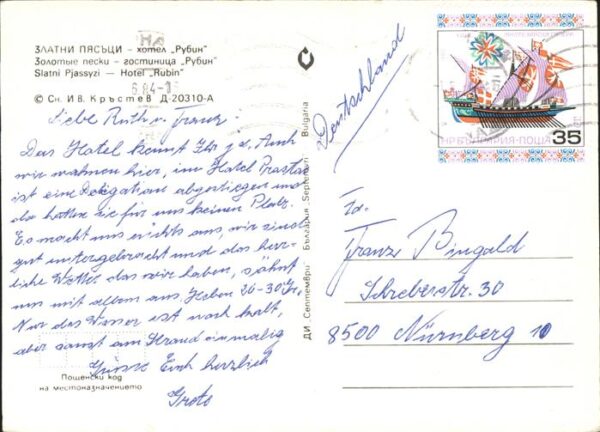 ЗЛАТНИ ПЯСЪЦИ – хотел „Рубин“
Золотые пески – гостиница „Рубин“
Slatni Pjassyzi – Hotel „Rubin“
© Сн. Ив. Кръстев Д-20310-А
6.84
Liebe Ruth u. Franz.
Das Hotel kennt Ihr ja. Auch
wir wohnen hier, im Hotel
ist eine Delegation abgestiegen und
da hatten sie für uns keinen Platz.
Es macht uns nichts aus, wir sind
gut untergebracht und das herr-
liche Wetter das wir haben, söhnt
uns mit allem aus. Haben 26-30 Gr.
Nur das Wasser ist noch kalt,
aber sonst am Strand einmalig
Grüsse Euch herzlich
Пощенски код
на местоназначението
ДИ „Септември“ България „Septemvri“ Bulgaria
Deutschland
НР БЪЛГАРИЯ·ПОЩА 35
Fa.
Franz Bingald
Schreberstr. 30
8500 Nürnberg 10